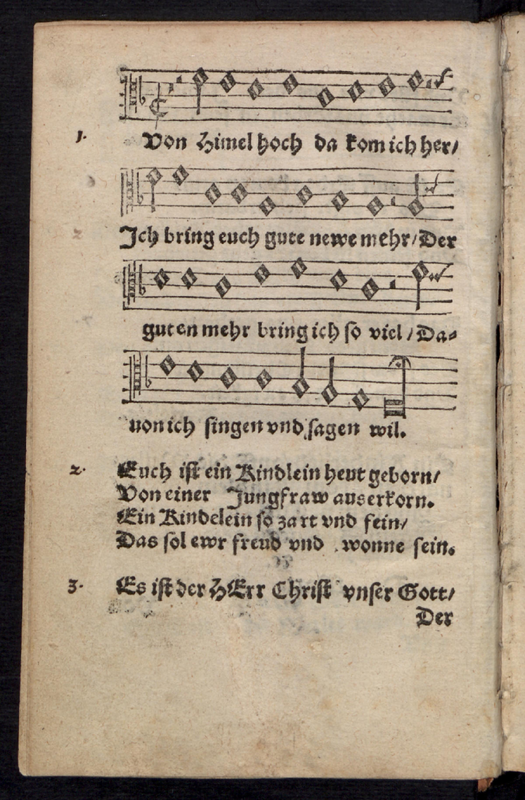 1.
Von Himel hoch da kom ich her/
Ich bring euch gute newe mehr/Der
guten mehr bring ich so viel/Da-
uon ich singen vnd sagen wil.
2. Euch ist ein Kindlein heut geborn/
Von einer Jungfraw auserkorn.
Ein Kindelein so zart vnd fein/
Das sol ewr freud vnd wonne sein.
3. Es ist der HErr Christ vnser Gott/
Der